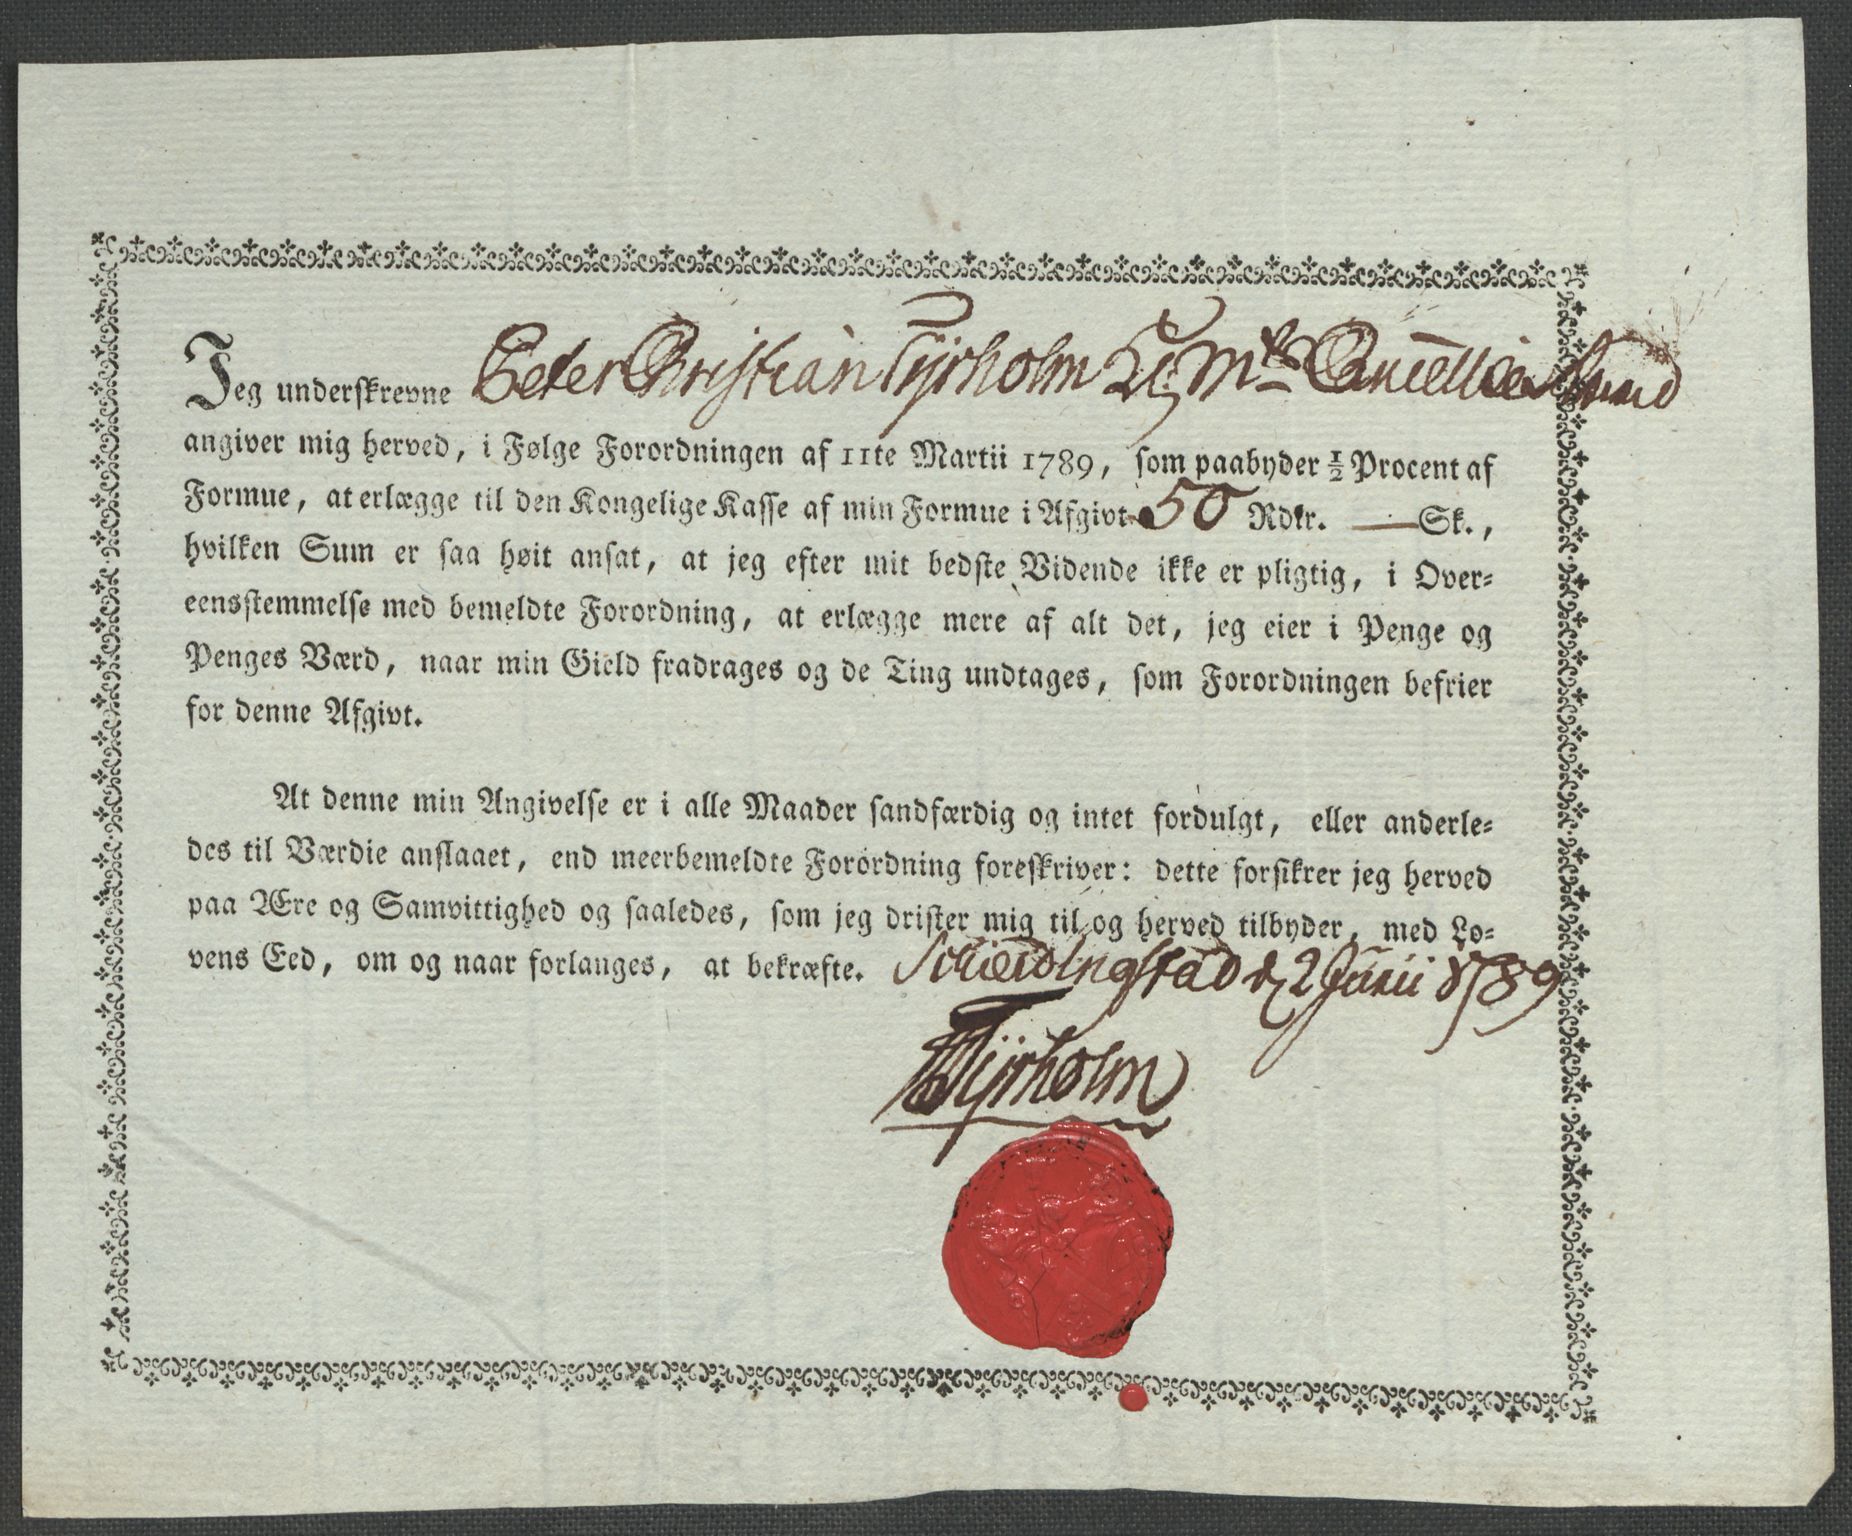 Jeg underskrevne Peter Christian Tyrholm Kg. Mts Cancellie
angiver mig herved, i Følge Forordningen af 11te Martii 1789, som paabyder ½ Procent af
Formue, at erlægge til den Kongelige Kasse af min Formue i Afgivt 50 Rdlr. — Sk.,
hvilken Sum er saa høit ansat, at jeg efter mit bedste Vidende ikke er pligtig, i Over-
eensstemmelse med bemeldte Forordning, at erlægge mere af alt det, jeg eier i Penge og
Penges Værd, naar min Gield fradrages og de Ting undtages, som Forordningen befrier
for denne Afgivt.
At denne min Angivelse er i alle Maader sandfærdig og intet fordulgt, eller anderle-
des til Værdie anslaaet, end meerbemeldte Forordning foreskriver: dette forsikrer jeg herved
paa Ære og Samvittighed og saaledes, som jeg drister mig til og herved tilbyder, med Lo-
vens Eed, om og naar forlanges, at bekræfte. d 2 Junii 1789
Tyrholm